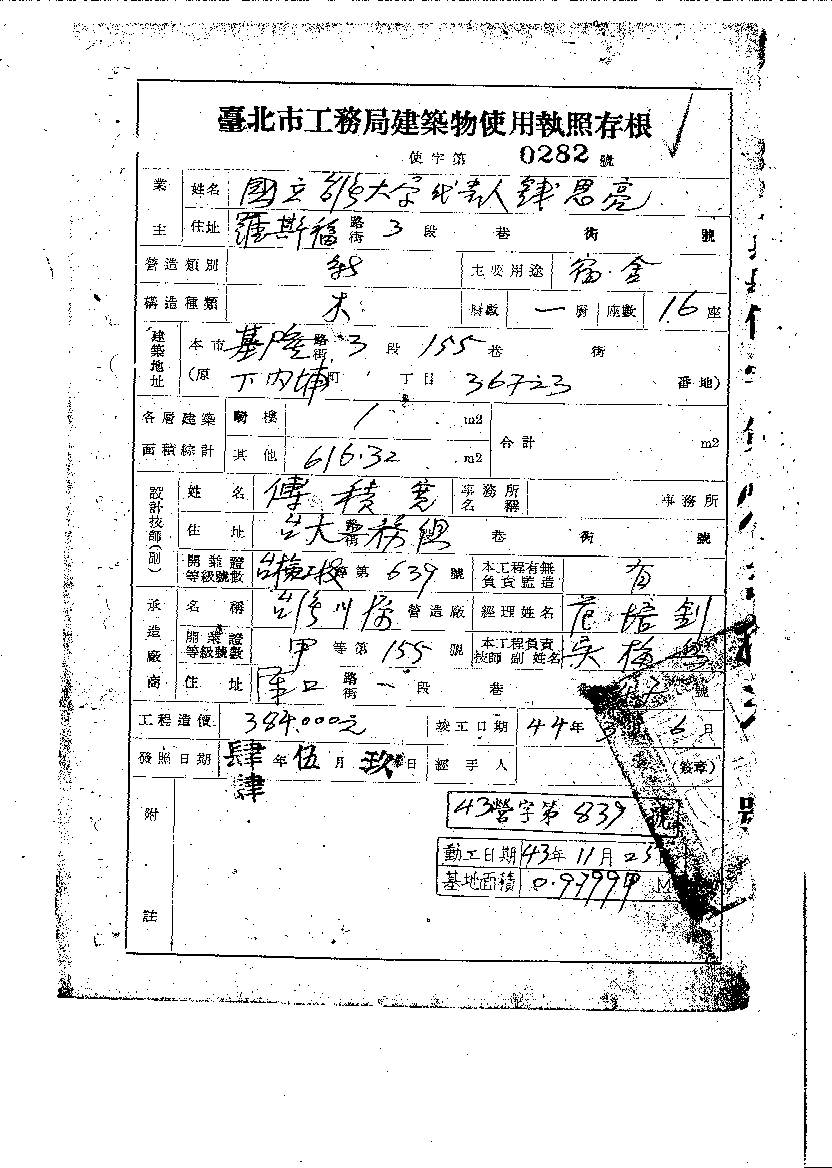 臺北市工務局建築物使用執照存根
使字第 0282 號
業主 姓名 國立台灣大学代表人錢思亮
住址 羅斯福 路街 3 段 巷 衖 號
營造類別 新 主要用途 宿舍
構造種類 木 層數 一 層 座數 16 座
建築地址 本市 基隆 路街 3 段 155 巷 衖
(原 下內埔 町 丁目 367-23 番地)
各層建築面積綜計 騎樓 / m2 合計 m2
其他 616.32 m2
設計技師(副) 姓名 傅積寬 事務所名稱 事務所
住址 台大總務組 巷 衖 號
開業證等級號數 等第 639 號 本工程有無負責監造 有
承造廠商 名稱 營造廠 經理姓名 范培釗
開業證等級號數 甲 等第 155 號 本工程負責技師副姓名 吳梅
住址 路街 一 段 巷 號
工程造價 384,000元 竣工日期 44年 6日
發照日期 肆肆 年 伍 月 玖 日 經手人 (簽章)
附註
43營字第 839 號
動工日期 43年11月25
基地面積 0.9799甲 M